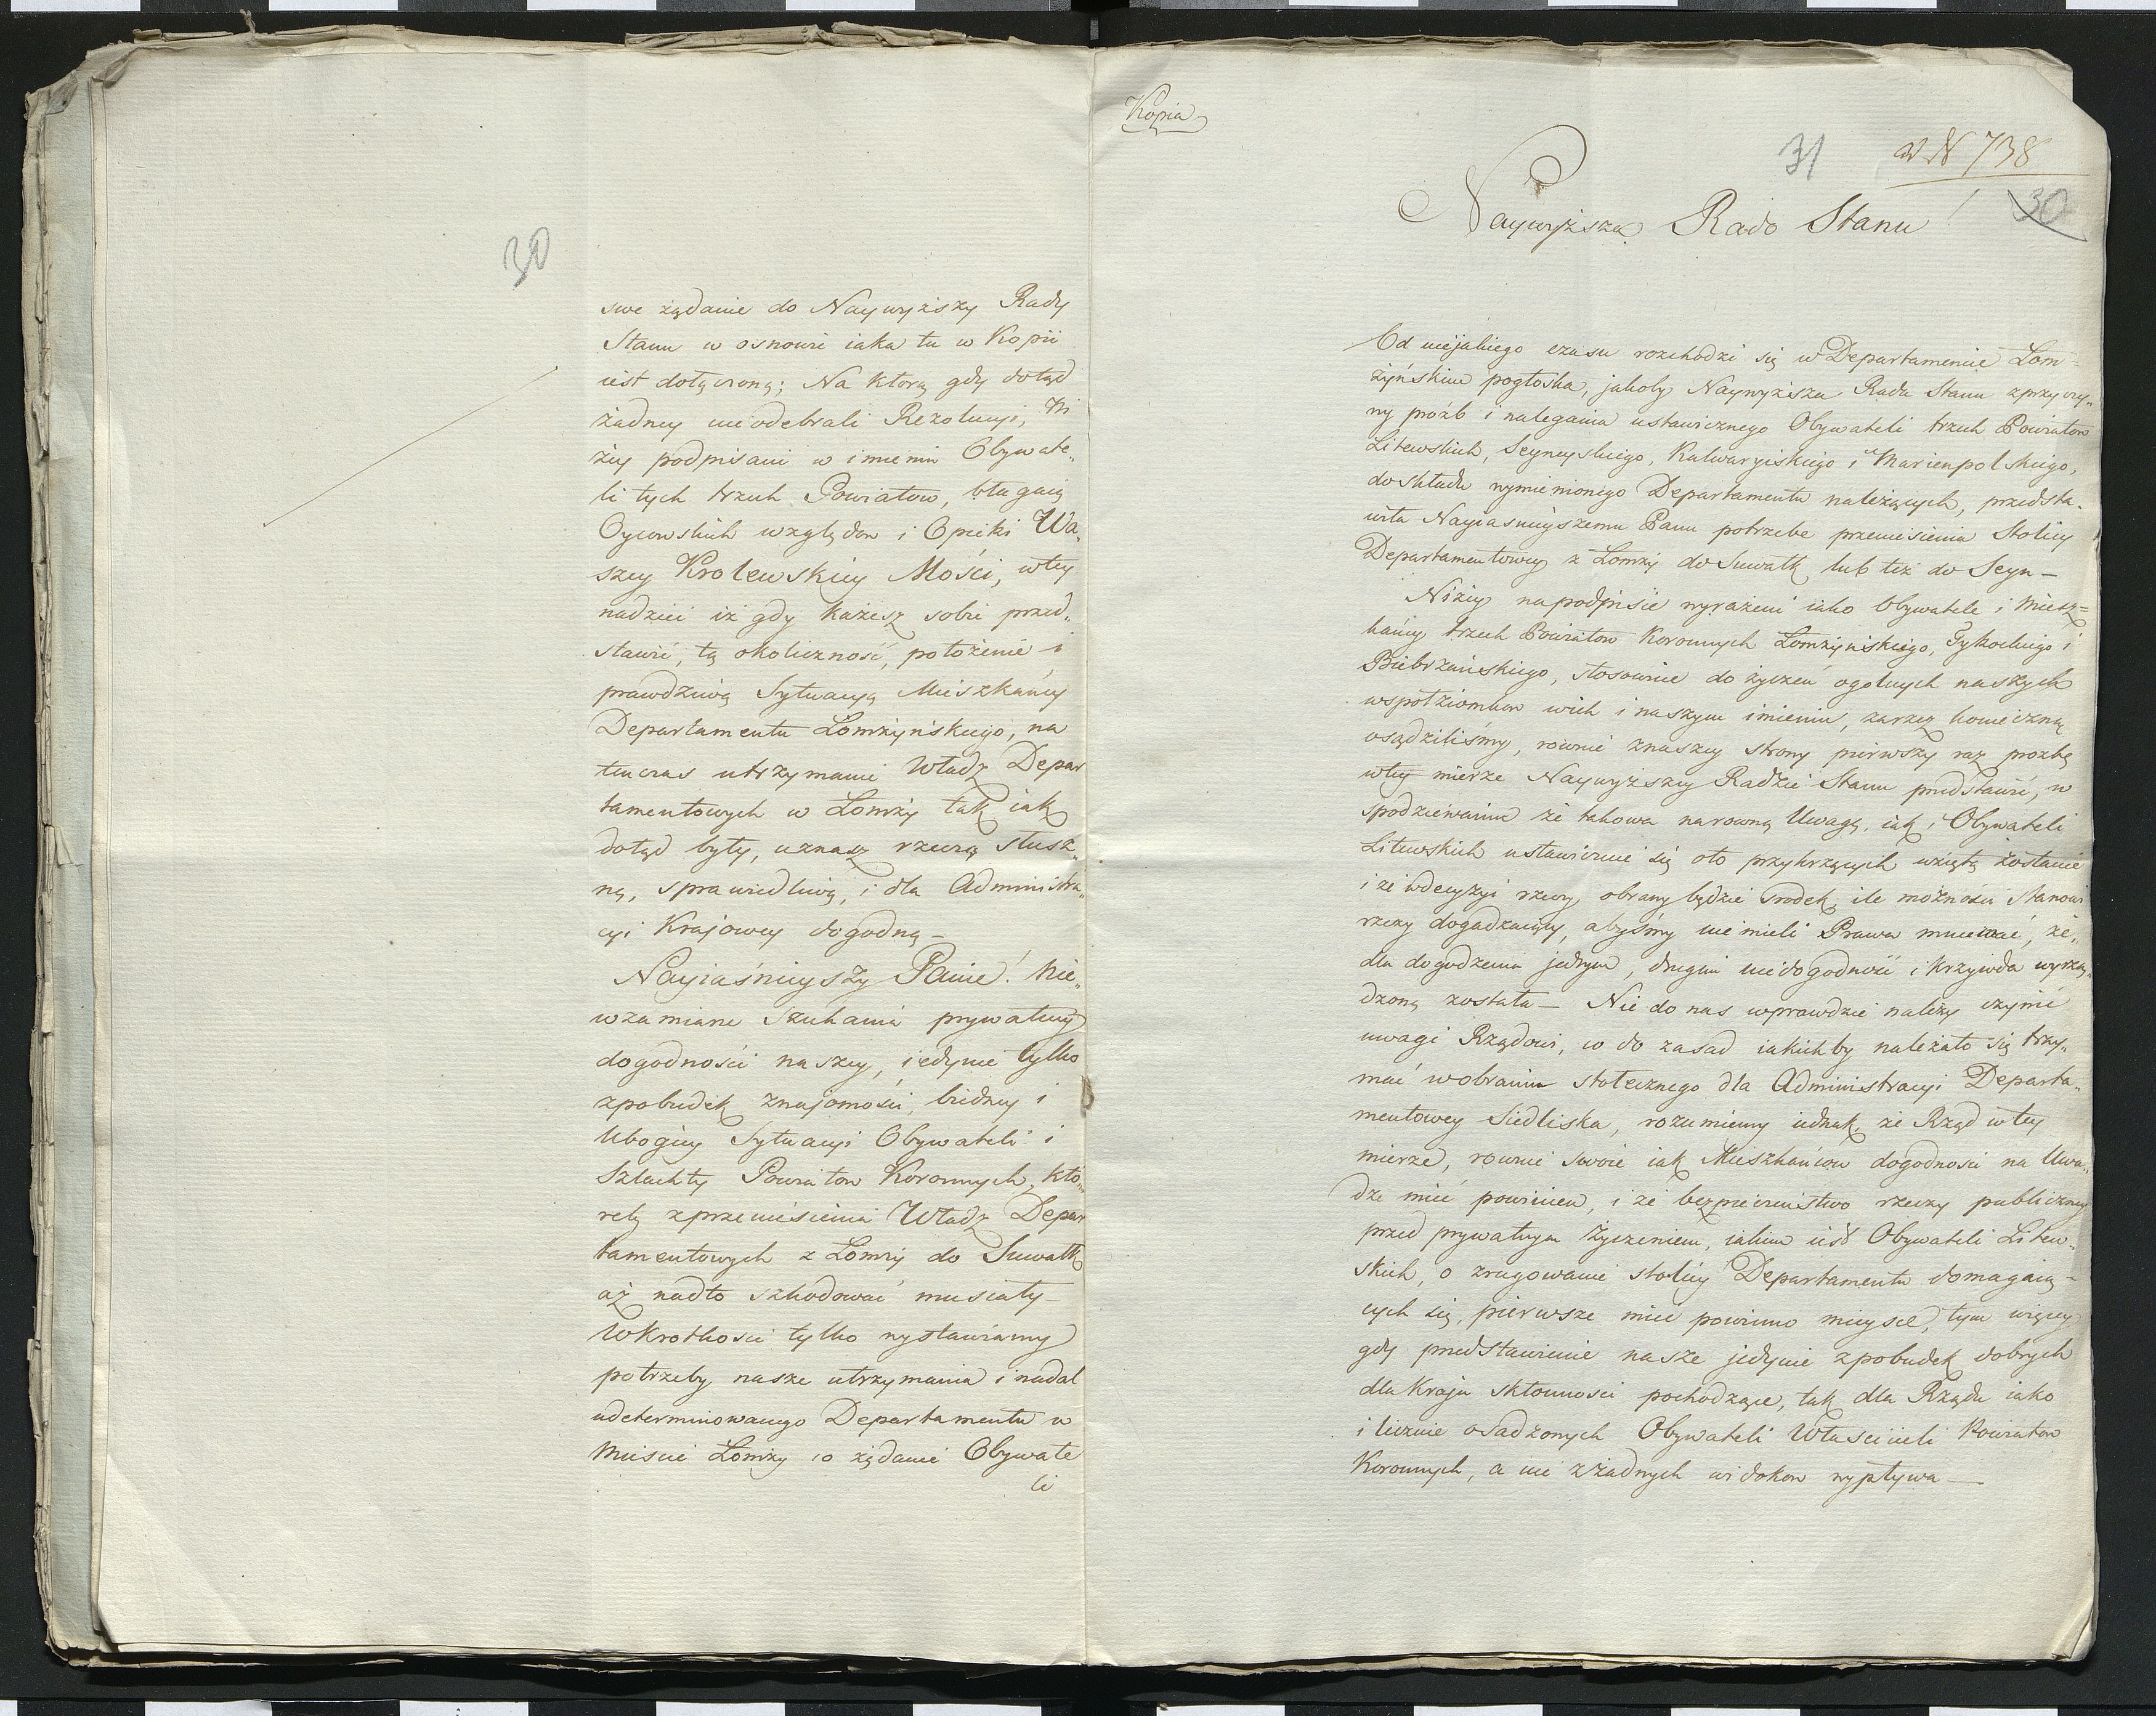 30
swe żądanie do Naywyższy Rady
Stanu w osnowie iaka tu w Kopii
iest dołączoną; Na którą gdy dotąd
żadney nieodebrali Rezolucyi, Ni
żey podpisani w imieniu Obywate„
li tych trzech Powiatow, błagaią
Oycowskich względow i Opieki Wa„
szey Krolewskiey Mości, wtey
nadziei iż gdy każesz sobie przed„
stawić, tę okoliczność, położenie i
prawdziwą Sytuacyą Mieszkańcy
Departamentu Łomżyńskiego, na
tenczas utrzymanie Władz Depar
tamentowych w Łomży tak iak
dotąd były, uznasz rzeczą słusz„
ną, sprawiedliwą, i dla Administra„
cyi Krajowey dogodną –
Nayiaśnieyszy Panie! Nie„
wzamiarze szukania prywatney
dogodności naszey, iedynie tylko
zpobudek znajomości, biedney i
Ubogiey Sytuacyi Obywateli i
Szlachty Powiatow Koronnych, kto„
reby zprzeniesienia Władz Depar
tamentowych z Łomży do Suwałk
aż nadto szkodować musiały –
Wkrotkości tylko wystawiamy
potrzeby nasze utrzymania i nadal
udeterminowanego Departamentu w
Mieście Łomży o żądanie Obywate
li
Kopia
31
ad N 738
30
Naywyższa Rado Stanu!
Od niejakiego czasu rozchodzi się w Departamencie Łom=
żyńskim pogłoska, jakoby Naywyższa Rada Stanu zprzyczy„
ny proźb i nalegania ustawicznego Obywateli trzech Powiatow
Litewskich, Seyneyskiego, Kalwaryiskiego i Marienpolskiego,
do składu wymienionego Departamentu należących, przedsta„
wiła Nayiaśnieyszemu Panu potrzebe przeniesienia Stolicy
Departamentowey z Łomży do Suwałk lub też do Seyn –
Niżey napodpisie wyrażeni iako Obywatele i Miesz=
kańcy trzech Powiatow Koronnych Łomżyńskiego, Tykockiego i
Biebrzańskiego, stosownie do życzeń ogolnych naszych
wspołziomkow wich i naszym imieniu, zarzecz konieczną
osądziliśmy, rownie znaszey strony pierwszy raz prozbę
wtey mierze Naywyższey Radzie Stanu przedstawić, w
spodziewaniu że takowa narowną Uwagę, iak i Obywateli
Litewskich ustawicznie się oto przykrzących wziętą zostanie
i że wdecyzyi rzeczy, obrany będzie srodek, ile możności stanowi
rzeczy dogadzaiący, abyśmy nie mieli Prawa mniemać, że„
dla dogodzenia jednym, drugim niedogodność i krzywda wyrzą„
dzoną została – Nie do nas wprawdzie należy czynić
uwagi Rządowi, co do zasad iakichby należało się trzy„
mać wobraniu stołecznego dla Administracyi Departa„
mentowey Siedliska, rozumiemy iednak, że Rząd wtey
mierze, rownie swoie iak Mieszkańcow dogodności na Uwa„
dze mieć powinien, i że bezpieczeństwo rzeczy publiczney
przed prywatnym życzeniem, iakim iest Obywateli Litew„
skich, o zrugowanie stolicy Departamentu domagaią=
cych się, pierwsze mieć powinno mieysce, tym więcey
gdy przedstawienie nasze jedynie zpobudek dobrych
dla Kraju skłonności pochodzące, tak dla Rządu iako
i licznie osadzonych Obywateli Właścicieli Powiatow
Koronnych, a nie zżadnych widokow wypływa —